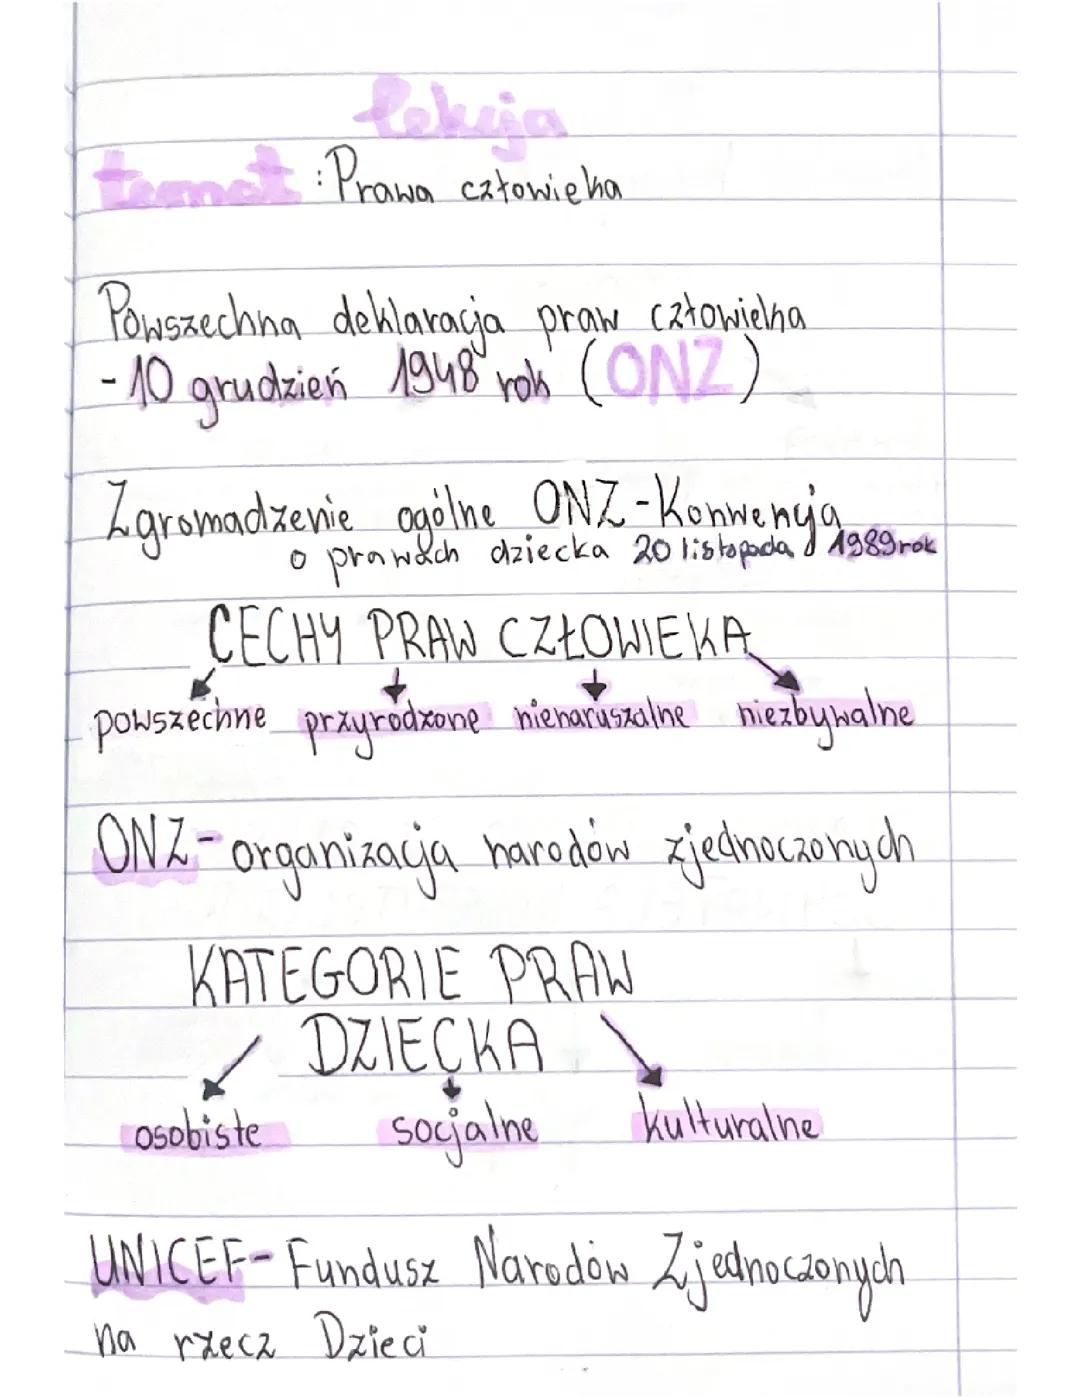 lekcja
temat: Prawa człowieka
Powszechna deklaracja praw człowieka
- 10 grudzień 1948 rok (ONZ)
Zgromadzenie ogólne ONZ - Konwencja
o prawach dziecka 20 listopada 1989 rok
CECHY PRAW CZŁOWIEKA
powszechne przyrodzone nienaruszalne niezbywalne
ONZ - organizacja narodów zjednoczonych
KATEGORIE PRAW
DZIECKA
osobiste socjalne kulturalne
UNICEF - Fundusz Narodów Zjednoczonych
na rzecz Dzieci